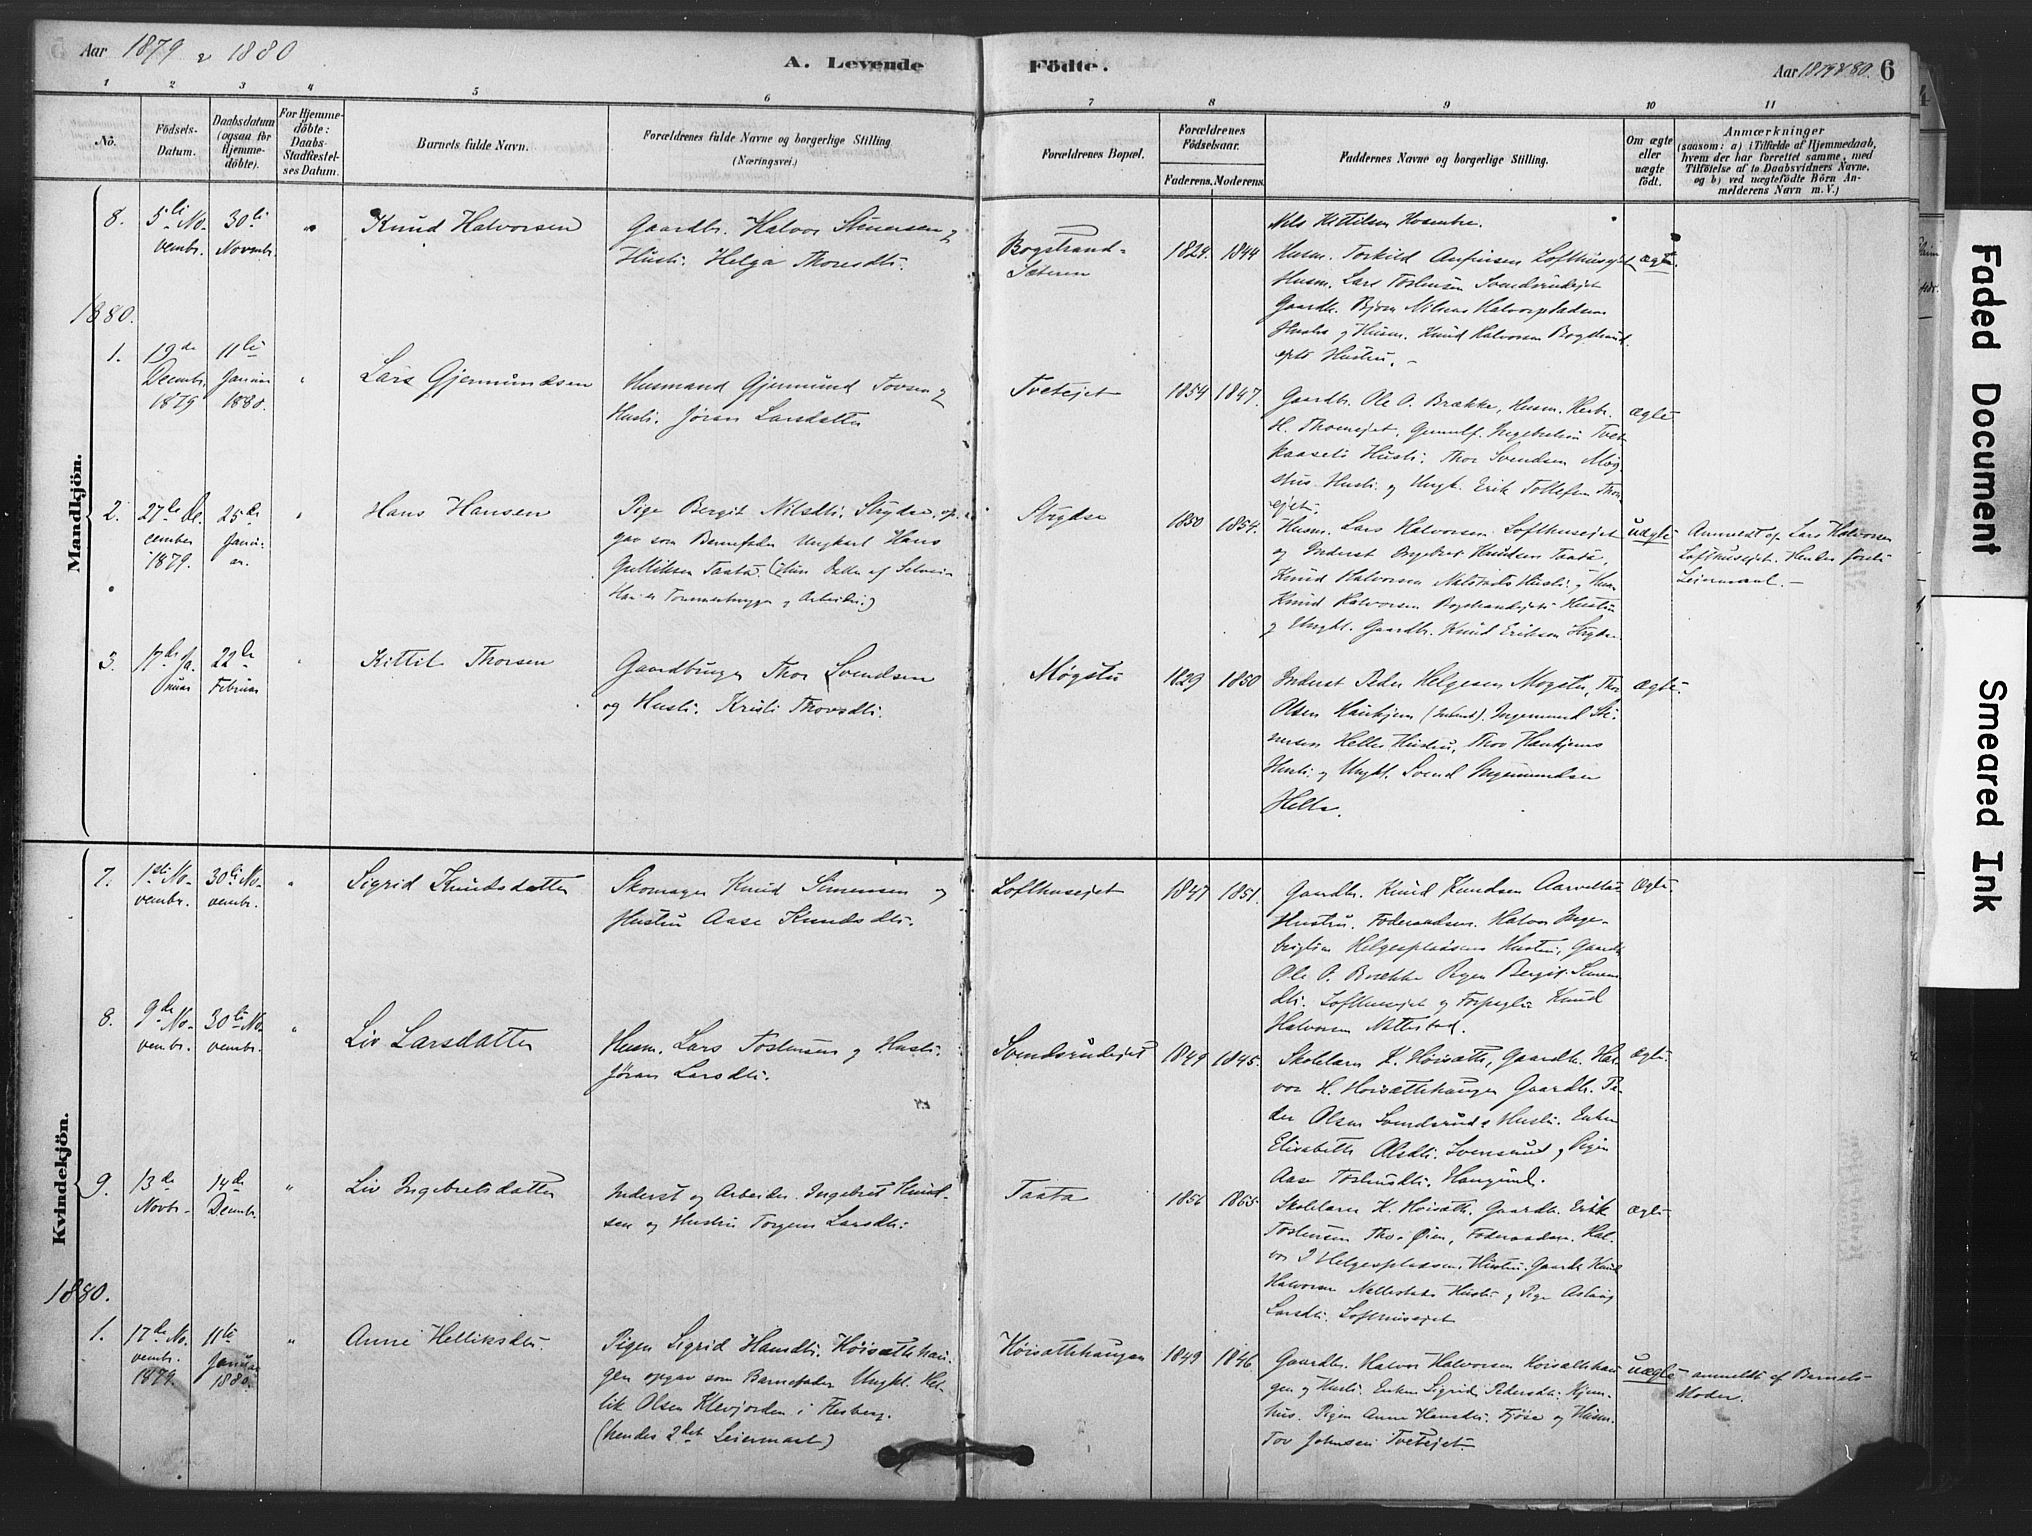 Aar 1879 & 1880
A. Levende
Födte.
Aar 1879 & 80. 6
1 2 3 4 5 6 7 8 9 10 11
No.
Födsels-
Datum.
Daabsdatum
(ogsaa for
Hjemme-
döbte).
For Hjemme-
döbte:
Daabs-
Stadfæstel-
ses Datum.
Barnets fulde Navn.
Forældrenes fulde Navne og borgerlige Stilling
(Næringsvei.)
Forældrenes Bopæl.
Forældrenes
Födselsaar.
Faderens. Moderens.
Faddernes Navne og borgerlige Stilling.
Om ægte
eller
uægte
födt.
Anmærkninger
(saasom: a) i Tilfælde af Hjemmedaab,
hvem der har forrettet samme, med
Tilföielse af to Daabsvidners Navne,
og b) ved uægtefödte Börn An-
melderens Navn m. V.)
Mandkjön.
8.
5te No-
vembr.
30te
Novembr.
Knud Halvorsen
Gaardbr. Halvor Simensen og
Hustr. Helga Thoresdtr.
Bogstrand-
Sæteren
1824. 1844
Nels Kittilsen
Husm. Torkild Anfinsen Lofthusejet
Husm. Lars Tostensen Svendsrudejet
Gaardbr. Bjørn Nilsen Halvorpladsens
Hustr. og Husm. Knud Halvorsen Bogstrand
ejets Hustru.
ægte.
1880.
1.
19de
Decembr.
1879
11te
Januar
1880.
Lars Gjermundsen
Husmand Gjermund Tovsen og
Hustr. Jøran Larsdatter
Tvetejet
1854 1847.
Gaardbr. Ole A. Brække, Husm. Herbr.
H. Thorsejet, Gunulf Ingebretsen Tvet-
Hustr. Thor Svendsen Møg-
stus Hustr. og Ungk. Erik Tollefsen Thors-
ejet.
ægte
2.
27de De-
cember
1879.
25de
Janu-
ar.
Hans Hansen
Pige Bergit Nilsdtr. Strydse, op-
gav som Barnefader Ungkarl Hans
Gulliksen Taata
Han er Tømmerhugger og Arbeider)
Strydse
1850 1854.
Husm. Lars Halvorsen Lofthusejet
og Inderst Knudsen Taata,
Knud Halvorsen Hustr. og Husm.
Knud Halvorsen Bogstrandejets Hustru
og Ungk. Gaardbr. Knud Eriksen Strydse
uægte
Anmeldt af Lars Halvorsen
Lofthusejet. Hendes første
Leiermaal.
3.
17de Ja-
nuar
22de
Februar
Kittil Thorsen
Gaardbruger Thor Svendsen
og Hustr. Kristi Thorsdtr.
Møgstu
1829 1850
Inderst Peder Helgesen Mogstu, Thor
Olsen Haukjem (Inderst), Ingemund Ste-
nersen Helles Hustru, Thor Haukjems
Hustr. og Ungk. Svend Ingemundsen
Helle.
ægte.
Kvindekjön.
7.
1ste No-
vembr.
30te No-
vembr.
Sigrid Knudsdatter
Skomager Knud Simensen og
Hustru Aase Knudsdtr.
Lofthusejet
1847 1851.
Gaardbr. Knud Knudsen Aarvelta
Hustru, Føderaadsm. Halvor Inge-
brigtsen Helgespladsens Hustru, Gaardbr.
Ole A. Brække Pigen Bergit Simens-
dtr. Lofthusejet og Knud
Halvorsen Nattestad.
ægte.
8.
9de
No-
vembr.
30te No-
vembr.
Liv Larsdatter
Husm. Lars Tostensen og Hustr.
Jøran Larsdtr.
Svendsrudejet
1849 1845.
Skolelærer K. Høisæth, Gaardbr. Hal-
vor H. Høisæthhaugen Gaardbr. Pe-
der Olsen Svendsruds Hustr. Enken
Elisabeth Olsdtr. Svensrud og Pigen
Aase Tostensdtr. Haugrud.
ægte.
9.
13de
Novbr.
14de
Decembr.
Liv Ingebretsdatter
Inderst og Arbeider Ingebret Knud-
sen og Hustru Torgun Larsdtr.
Taata
1856 1855
Skolelærer K. Høisæth, Gaardbr. Erik
Tostensen Øien, Føderaadsm. Hal-
vor I Helgespladsens Hustru, Gaardbr. Knud
Halvorsen Nattestads Hustr. og Pige Aslaug
Larsdtr. Lofthusejet
ægte
1880.
1.
17de No-
vembr.
1879.
11te
Januar
1880.
Anne Helliksdtr.
Pigen Sigrid Hansdtr. Høisæthhau-
gen opgav som Barnefader Ungk. Hel-
lik Olsen Klevjorden i Flesberg.
(hendes 2det Leiermaal)
Høisæthhaugen
1849 1846
Gaardbr. Halvor Halvorsen Høisæthhau-
gen og Hustr. Enken Sigrid Pedersdtr. Kjem-
hus. Pigen Anne Hansdtr. Fjøse og Husm.
Tov Johnsen Tvetejet.
uægte
anmeldt af Barnets
Moder.
Faded Document
Smeared Ink